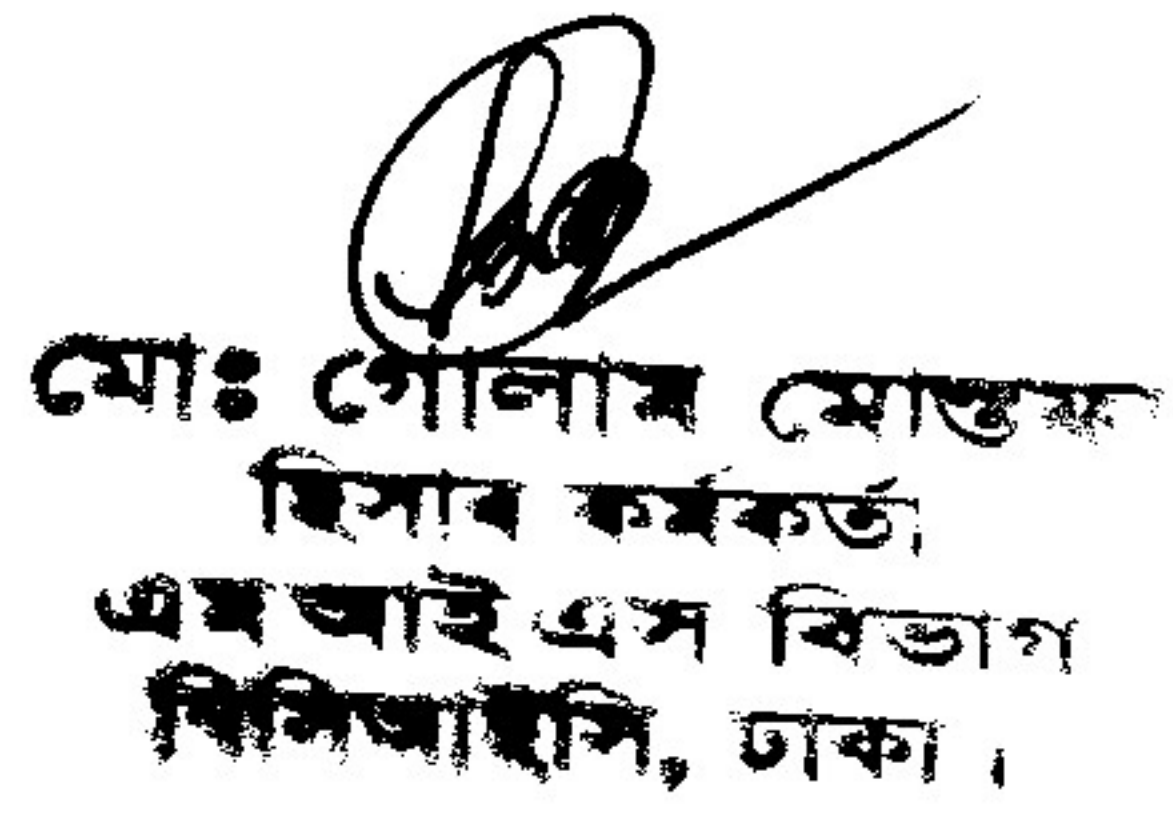 মোঃ গোলাম মোস্তফা
হিসাব কর্মকর্তা
এমআইএস বিভাগ
বিসিআইসি, ঢাকা ।